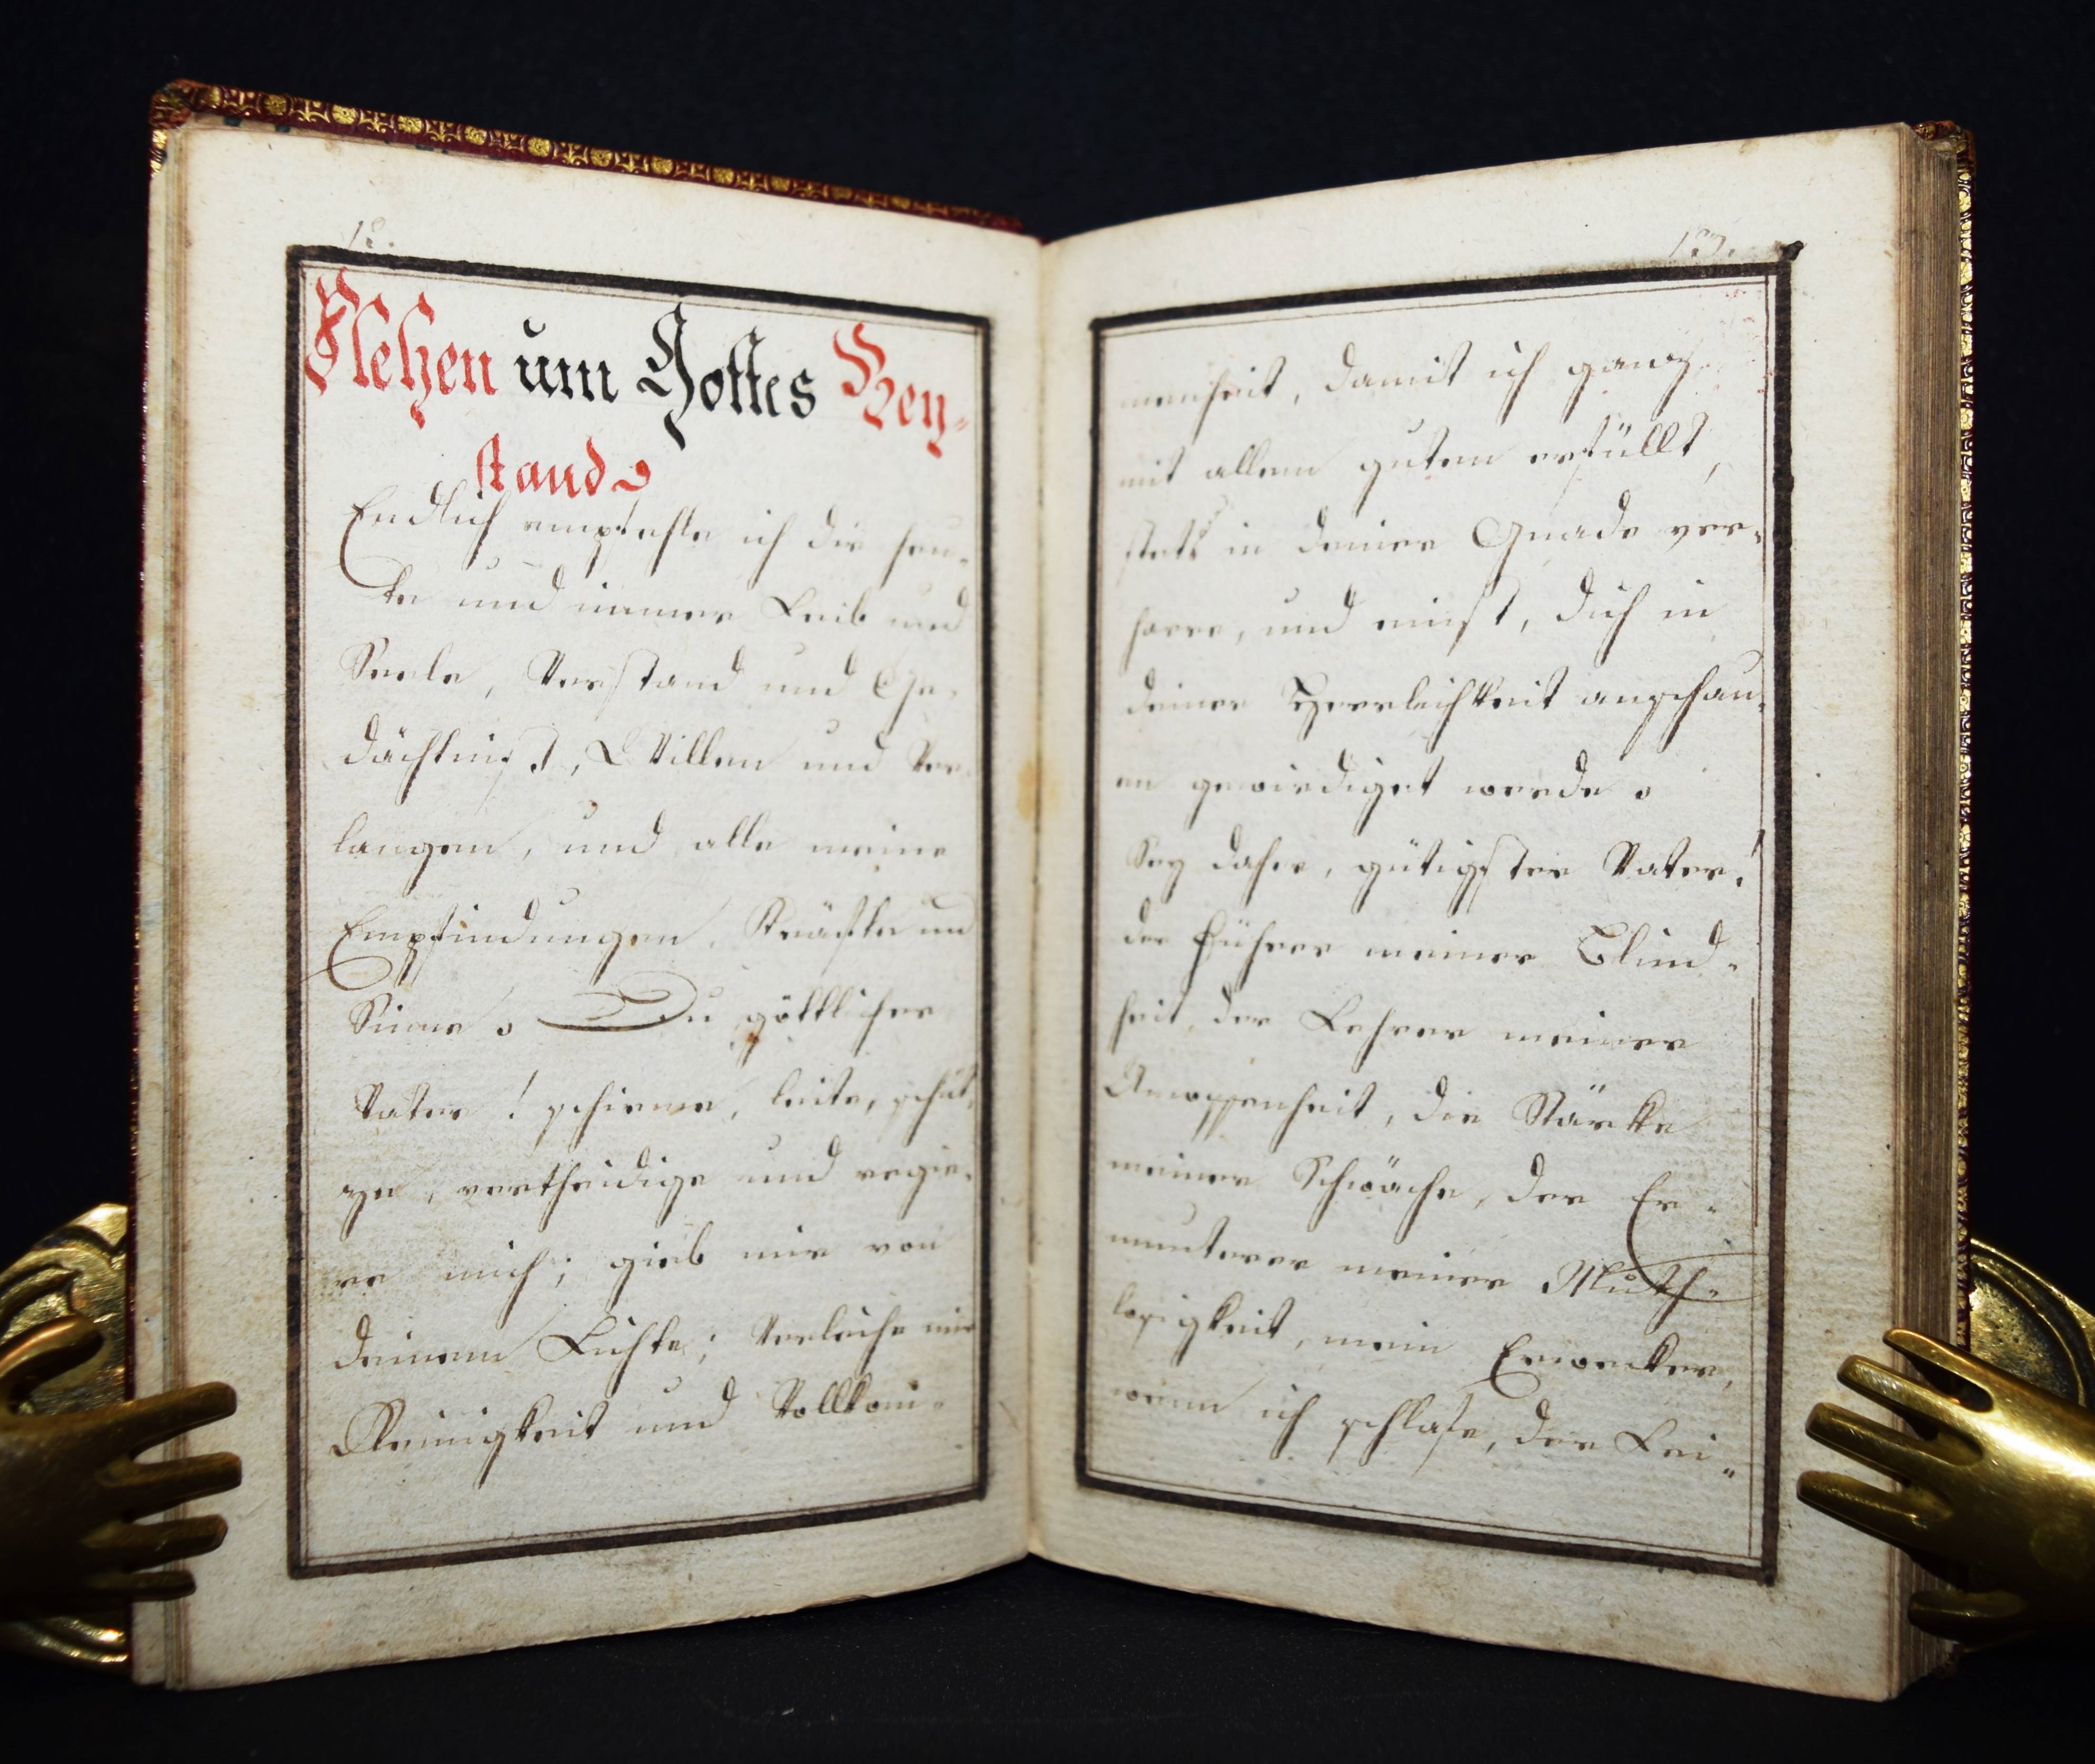 12.
Flehen um Gottes Bey-
stand.
Endlich empfehle ich dir heu-
te und immer Leib und
Seele, Verstand und Ge-
dächtniß, Willen und Ver-
langen, und alle meine
Empfindungen, Kräfte und
Sinne. Du göttlicher
Vater! schirme, leite, schüt-
ze, vertheidige und regie-
re mich; gieb mir von
deinem Lichte; Verleihe mir
Reinigkeit und Vollkom-
13.
menheit, damit ich ganz
mit allem guten erfüllt,
stets in deiner Gnade ver-
harre, und einst, dich in
deiner Herrlichkeit anschau-
en gewürdiget werde.
Sey daher, gütigster Vater!
der Führer meiner Blind-
heit, der Lehrer meiner
die Stärke
meiner Schwäche, der Er-
munterer meiner Muth-
losigkeit, mein Erwecker,
wenn ich schlafe, der Lei-